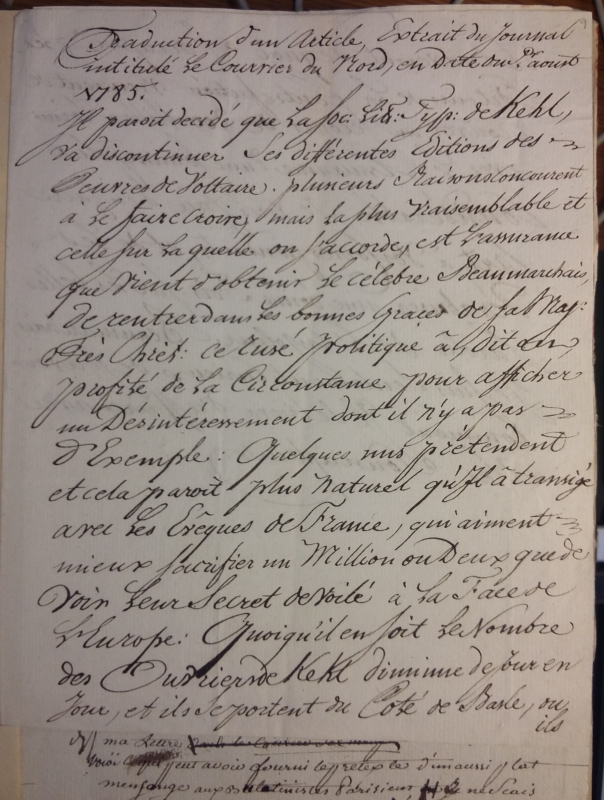 Traduction d'un Article, Extrait du Journal
intitulé Le Courrier du Nord, en Date du aoust
1785.
Il paroit decidé que La Soc: Litt: Typ: de Kehl,
va discontinuer Ses différentes Editions des
Oeuvres de Voltaire. plusieurs Raisons Concourent
à Le faire Croire, mais La plus vraisemblable et
celle sur Laquelle on s'accorde, est L'assurance
que vient d'obtenir Le célébre Beaumarchais,
de rentrer dans Les bonnes Graces de sa Maj:
Très Chret: ce rusé politique à, dit on,
profité de La Circonstance pour afficher
un Désintéressement dont il n'y a pas
d'Exemple: Quelques uns prétendent
et cela paroit plus Naturel qu'Il à transigé
avec Les Evêques de France, qui aiment
mieux sacrifier un Million ou Deux que de
voir Leur Secret dévoilé à La Face de
L'Europe: Quoiqu'il en soit Le Nombre
des Ouvriers de Kehl diminue de Jour en
Jour, et ils Se portent du Coté de Basle, où
ils
ma Lettre
voici ce qui peut avoir fourni le prétexte d'un aussi plat
mensonge aux parisiens, je ne scais